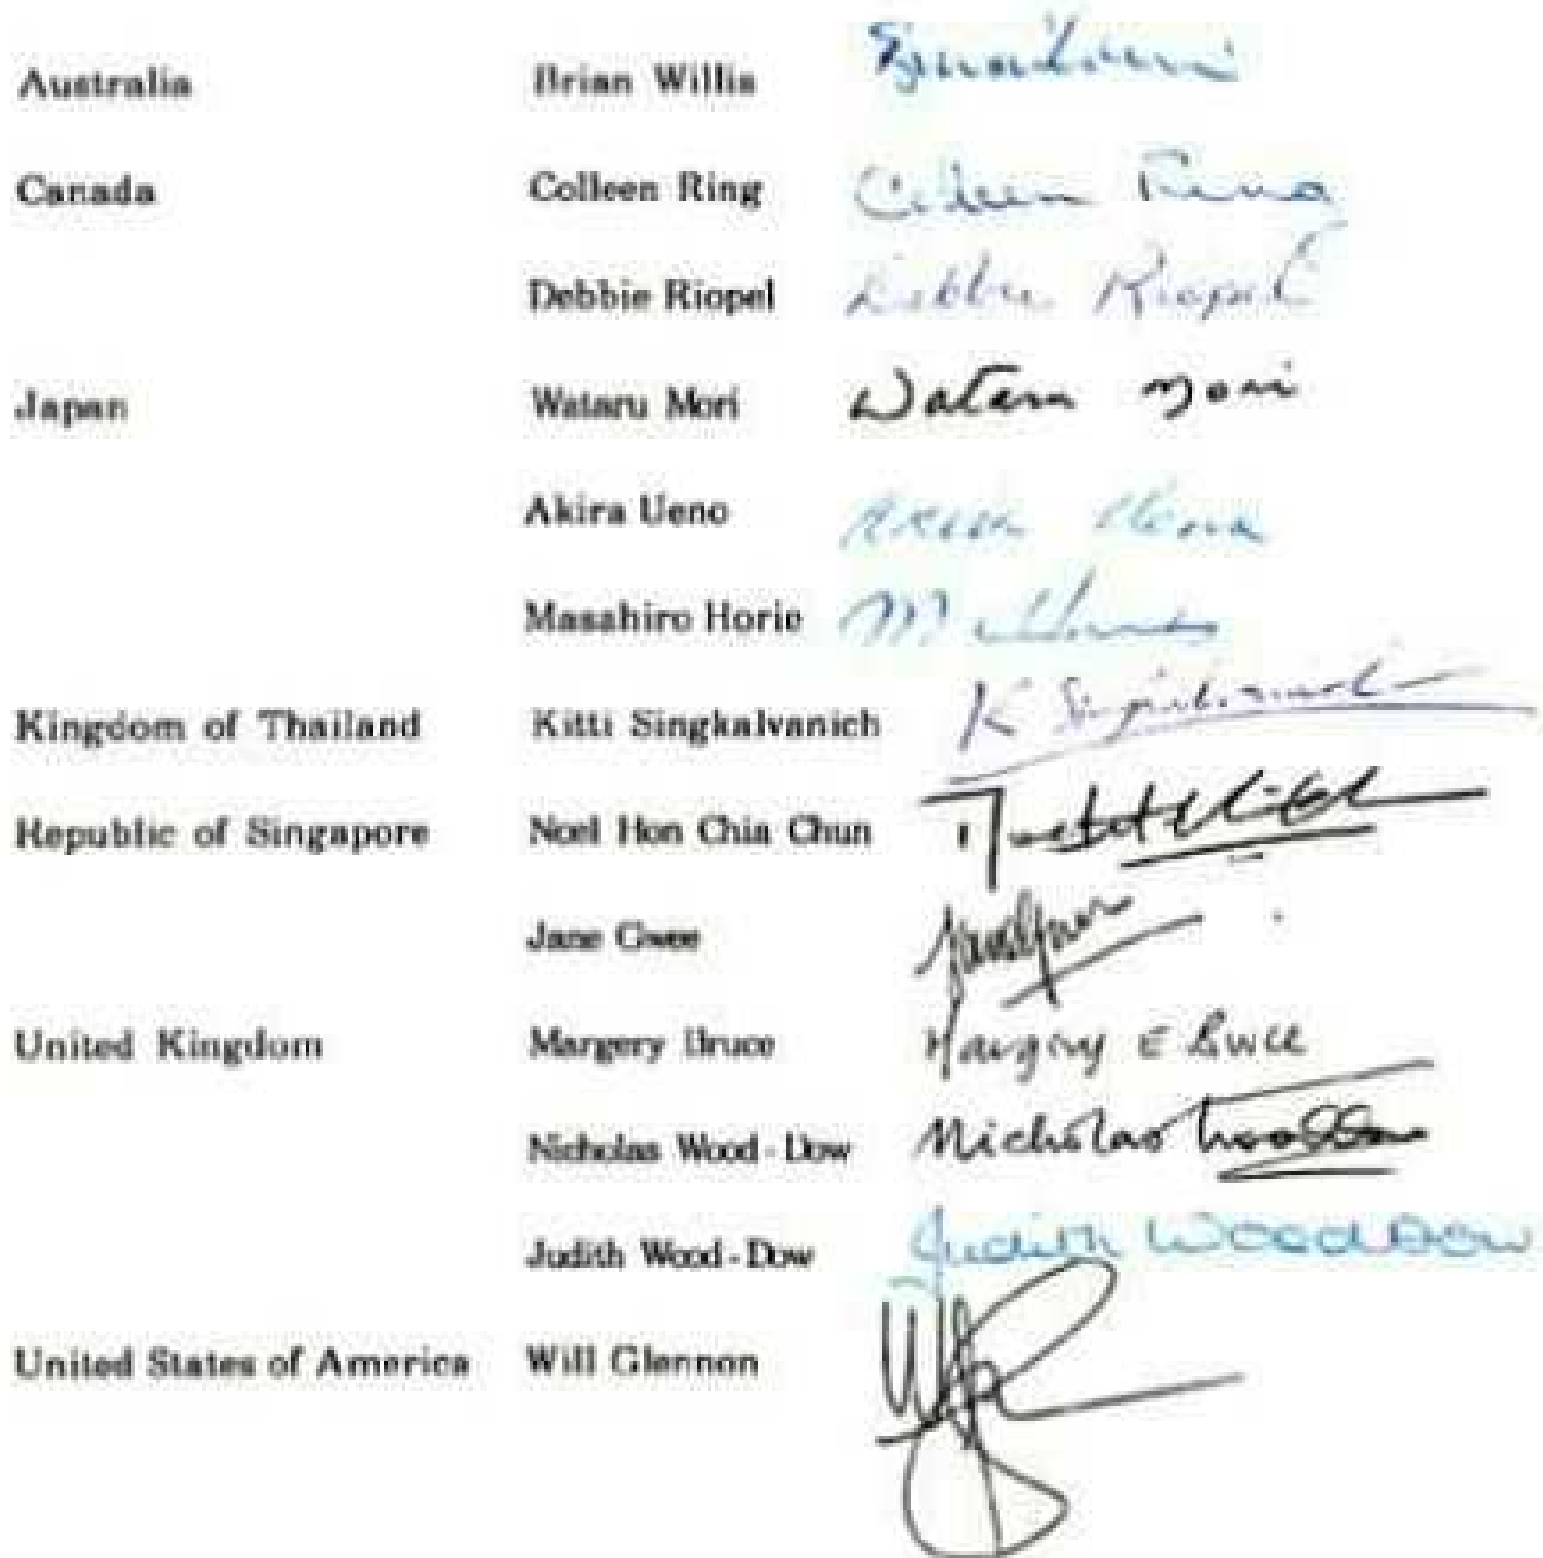 Australia Brian Willis
Canada Colleen Ring Colleen Ring
Debbie Riopel Debbie Riopel
Japan Wataru Mori Wataru Mori
Akira Ueno Akira Ueno
Masahiro Horie
Kingdom of Thailand Kitti Singkalvanich K
Republic of Singapore Noel Hon Chia Chun
Jane Gwee
United Kingdom Margery Bruce Margery E Bruce
Nicholas Wood-Dow Nicholas
Judith Wood-Dow Judith Wood-Dow
United States of America Will Glennon